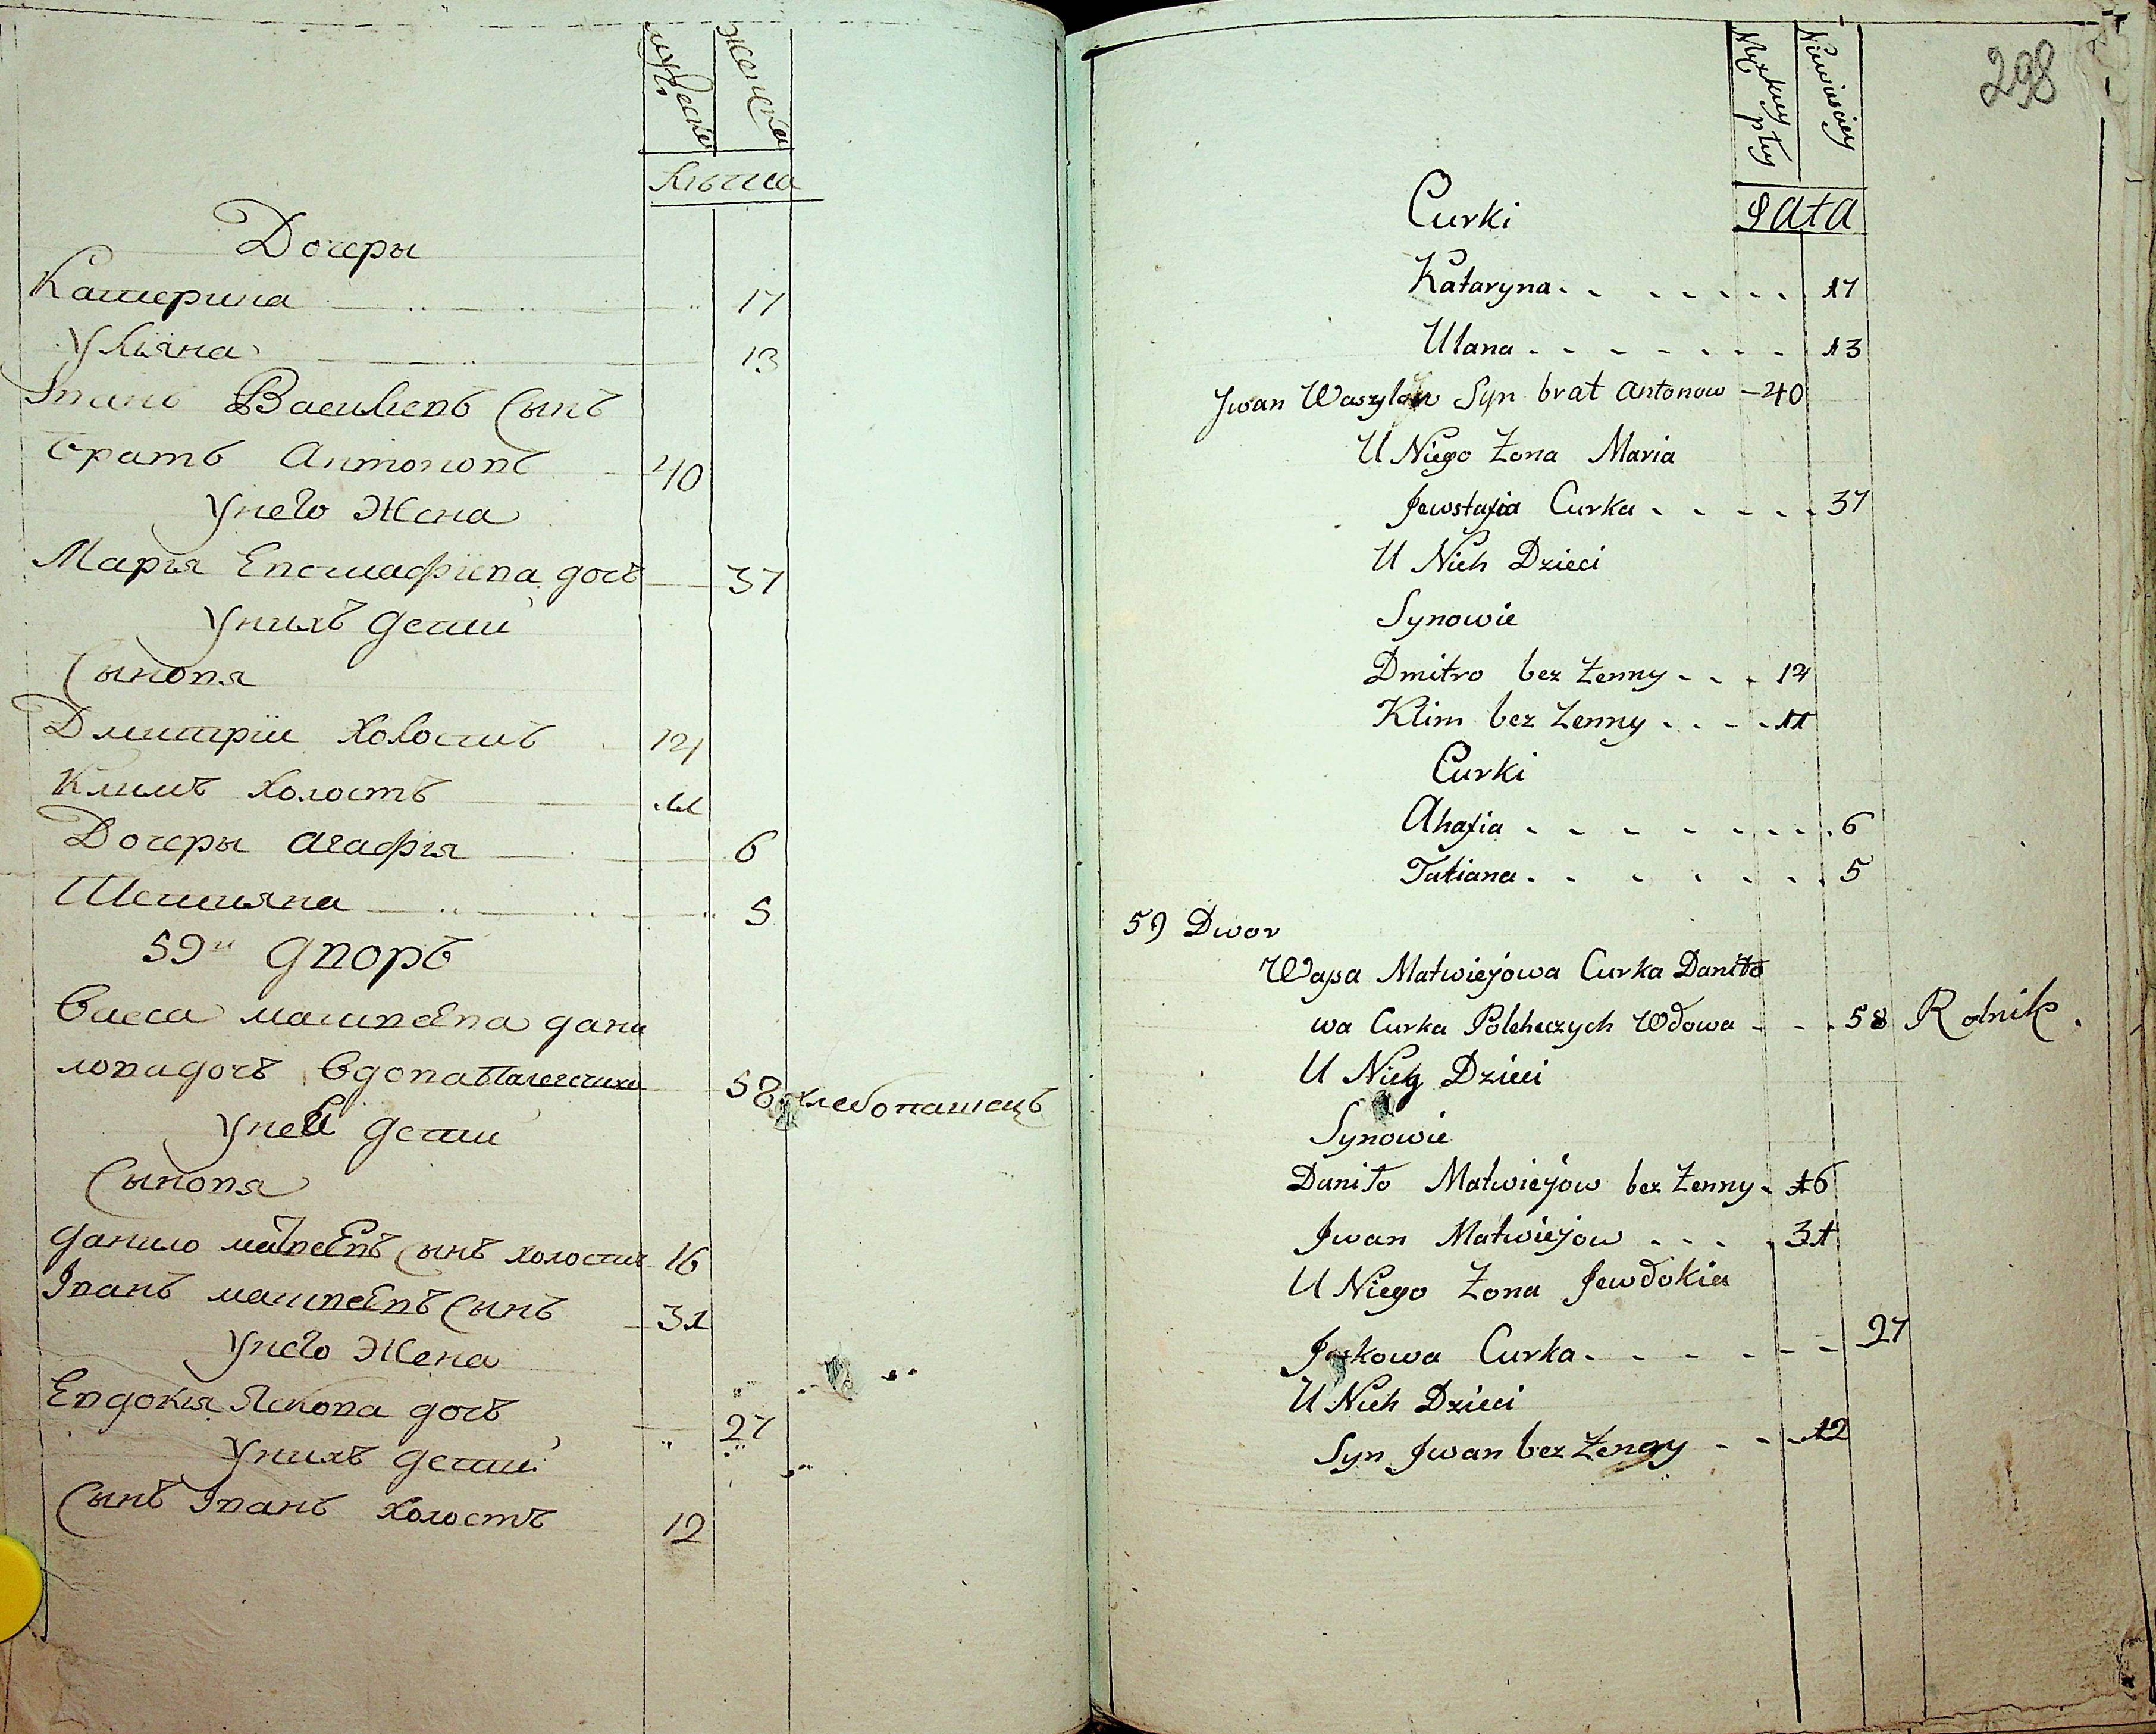 мужеска
женска
Лѣтиа
Дочеры
Катерина 17
Улияна 13
Іванъ Васильевъ Сынъ
братъ Антоновъ 40
Унего Жена
Марья Евстафіева дочъ 37
Унихъ дети
Сыновя
Дмитрій Холостъ 14
Климъ холостъ 11
Дочеры Агафія 6
Тетияна 5
59й дворъ
Васса матвеева дани
лова дочъ вдова 58 хлебопашецъ
Уней дети
Сыновя
данило матвеевъ Сынъ холостъ 16
Іванъ матвеевъ Сынъ 31
Унего Жена
Евдокия Яскова дочъ 27
Унихъ дети
Сынъ Іванъ холостъ 12
298
Męzkey płcy
Niewiasciey
Lata
Curki
Kataryna 17
Ulana 13
Jwan Waszylow Syn brat Antonow 40
U Niego Żona Maria
Jewstafia Curka 37
U Nich Dzieci
Synowie
Dmitro bez Żenny 14
Klim bez Żenny 11
Curki
Ahafia 6
Tatiana 5
59 Dwor
Wassa Matwiejowa Curka Daniło
wa Curka Wdowa 58 Rolnik.
U Niey Dzieci
Synowie
Daniło Matwiejow bez Żenny 16
Jwan Matwiejow 31
U Niego Żona Jewdokia
Jaskowa Curka 27
U Nich Dzieci
Syn Jwan bez Żenny 12